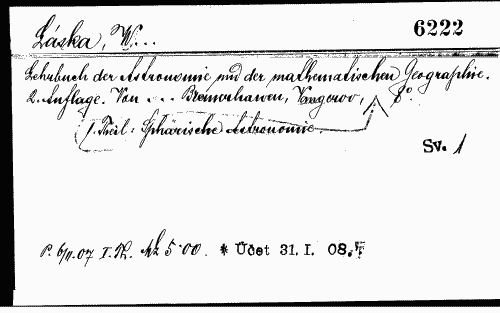 6222
Láska, W...
Lehrbuch der Astronomie und der mathematischen Geographie.
2. Auflage. Von ... Bremerhaven, Vangerov, 8°.
1. Theil: Sphärische Astronomie.
Sv. 1
P. 6/II.07 I. Th. Mk 5·00. * Účet 31. I. 08.